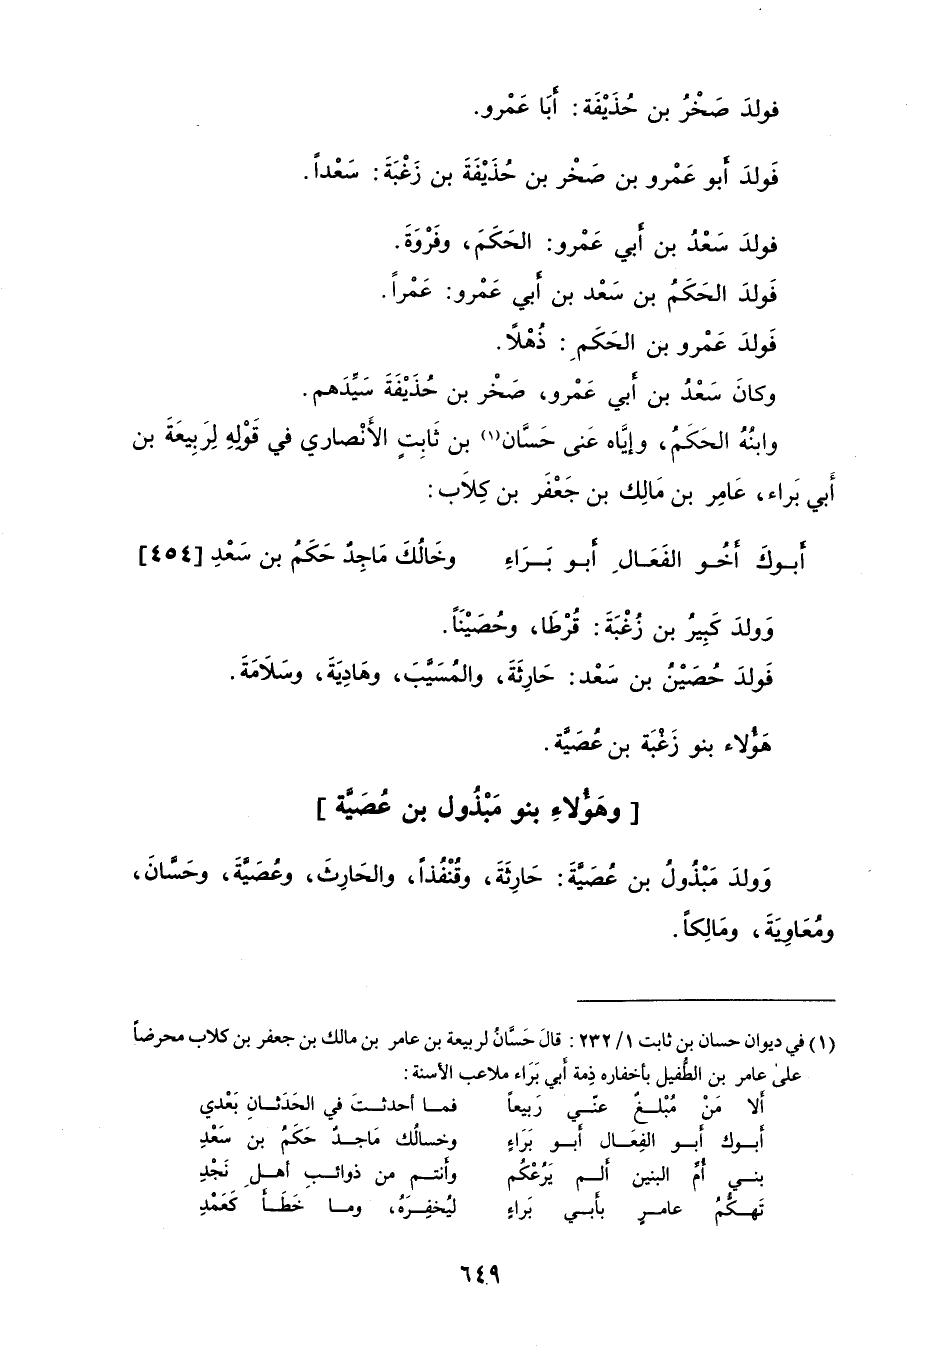 فولدَ صَخْرُ بن حُذَيْفَة: أَبَا عَمْرو.
فَولدَ أَبو عَمْرو بن صَخْر بن حُذَيْفَةَ بن زَغْبَةَ: سَعْداً.
فولدَ سَعْدُ بن أَبي عَمْرو: الحَكَمَ، وفَرْوَةَ.
فَولدَ الحَكَمُ بن سَعْد بن أَبي عَمْرو: عَمْراً.
فَولدَ عَمْرو بن الحَكَمِ: ذُهْلًا.
وكانَ سَعْدُ بن أَبي عَمْرو، صَخْر بن حُذَيْفَةَ سَيِّدَهم.
وابنُهُ الحَكَمُ، وإيَّاه عَنى حَسَّان(١) بن ثَابتٍ الأَنْصاري في قَوْلِهِ لِرَبيعَةَ بن
أَبي بَراء، عَامِر بن مَالِك بن جَعْفَر بن كِلاَب:
أَبـوكَ أَخُـو الفَعَـالِ أَبـو بَـرَاءِ وخَالُكَ مَاجِدٌ حَكَمُ بن سَعْدِ [٤٥٤]
وَولدَ كَبِيرُ بن زُغْبَةَ: قُرْطَا، وحُصَيْنَاً.
فَولدَ حُصَيْنُ بن سَعْد: حَارِثَةَ، والمُسَيَّبَ، وهَادِيَةَ، وسَلَامَةَ.
هَؤُلاء بنو زَغْبَة بن عُصَيَّة.
[ وهَؤُلاءِ بنو مَبْذُول بن عُصَيَّة ]
وَولدَ مَبْذُولُ بن عُصَيَّةَ: حَارِثَةَ، وقُنْفُذاً، والحَارِثَ، وعُصَيَّةَ، وحَسَّانَ،
ومُعَاوِيَةَ، ومَالِكاً.
(١) في ديوان حسان بن ثابت ١/ ٢٣٢: قالَ حَسَّانُ لربيعة بن عامر بن مالك بن جعفر بن كلاب محرضاً
علىٰ عامر بن الطُّفيل بأخفاره ذِمة أبي بَرَاء ملاعب الأسنة:
أَلا مَنْ مُبْلـغٌ عنّـي رَبيعاً فمـا أحدثـتَ في الحَدَثـانِ بَعْدي
أَبـوك أَبـو الفِعَـال أَبـو بَرَاءِ وخالُك مَاجـدٌ حَكَمُ بن سَعْدِ
بنـي أُمِّ البنين أَلـم يَرُعْكُم وأَنتـم من ذوائـبِ أهـلِ نَجْدِ
تَهـكُّمُ عامـرٍ بأَبـي بَراءِ ليُخفِـرَهُ، ومـا خَطـأَ كَعَمْدِ
٦٤٩